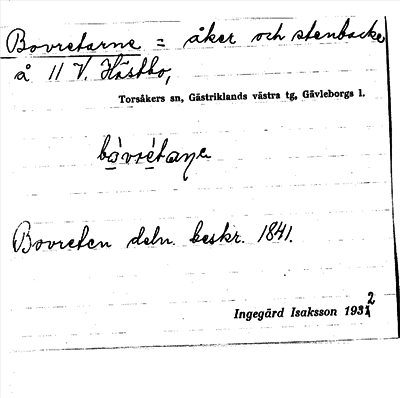 Bovretarne = åker och stenbacke
å 11 V. Hästbo,
Torsåkers sn, Gästriklands västra tg, Gävleborgs l.
Bovreten deln. beskr. 1841.
Ingegärd Isaksson 1932